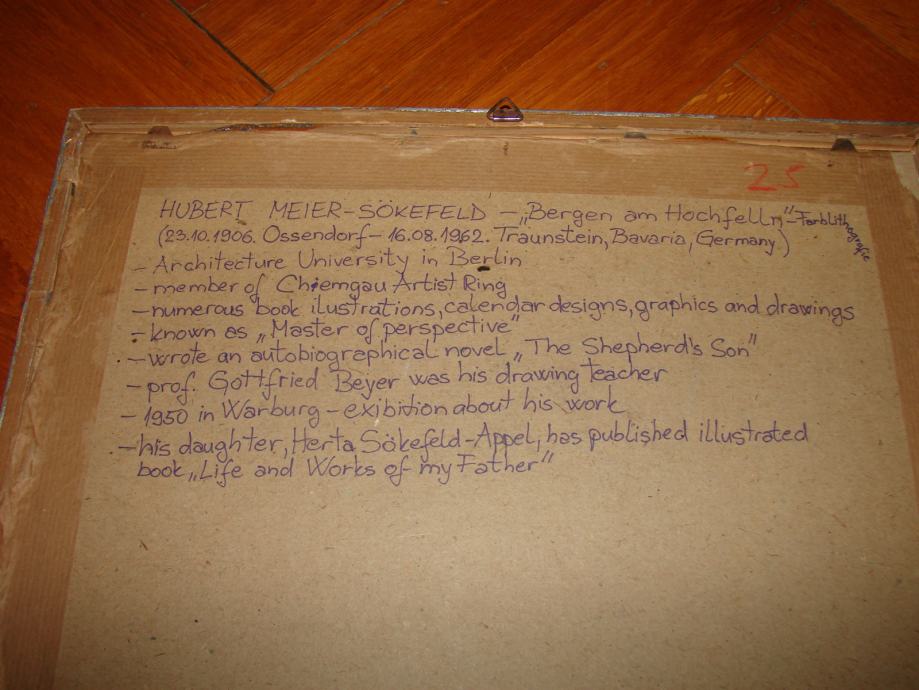 25
HUBERT MEIER-SÖKEFELD – „Bergen am Hochfelln“ – Farblithografie
(23.10.1906. Ossendorf – 16.08.1962. Traunstein, Bavaria, Germany)
– Architecture University in Berlin
– member of Chiemgau Artist Ring
– numerous book ilustrations, calendar designs, graphics and drawings
– known as „Master of perspective“
– wrote an autobiographical novel „The Shepherd's Son“
– prof. Gottfried Beyer was his drawing teacher
– 1950 in Warburg – exibition about his work
– his daughter, Herta Sökefeld-Appel, has published illustrated
book „Life and Works of my Father“